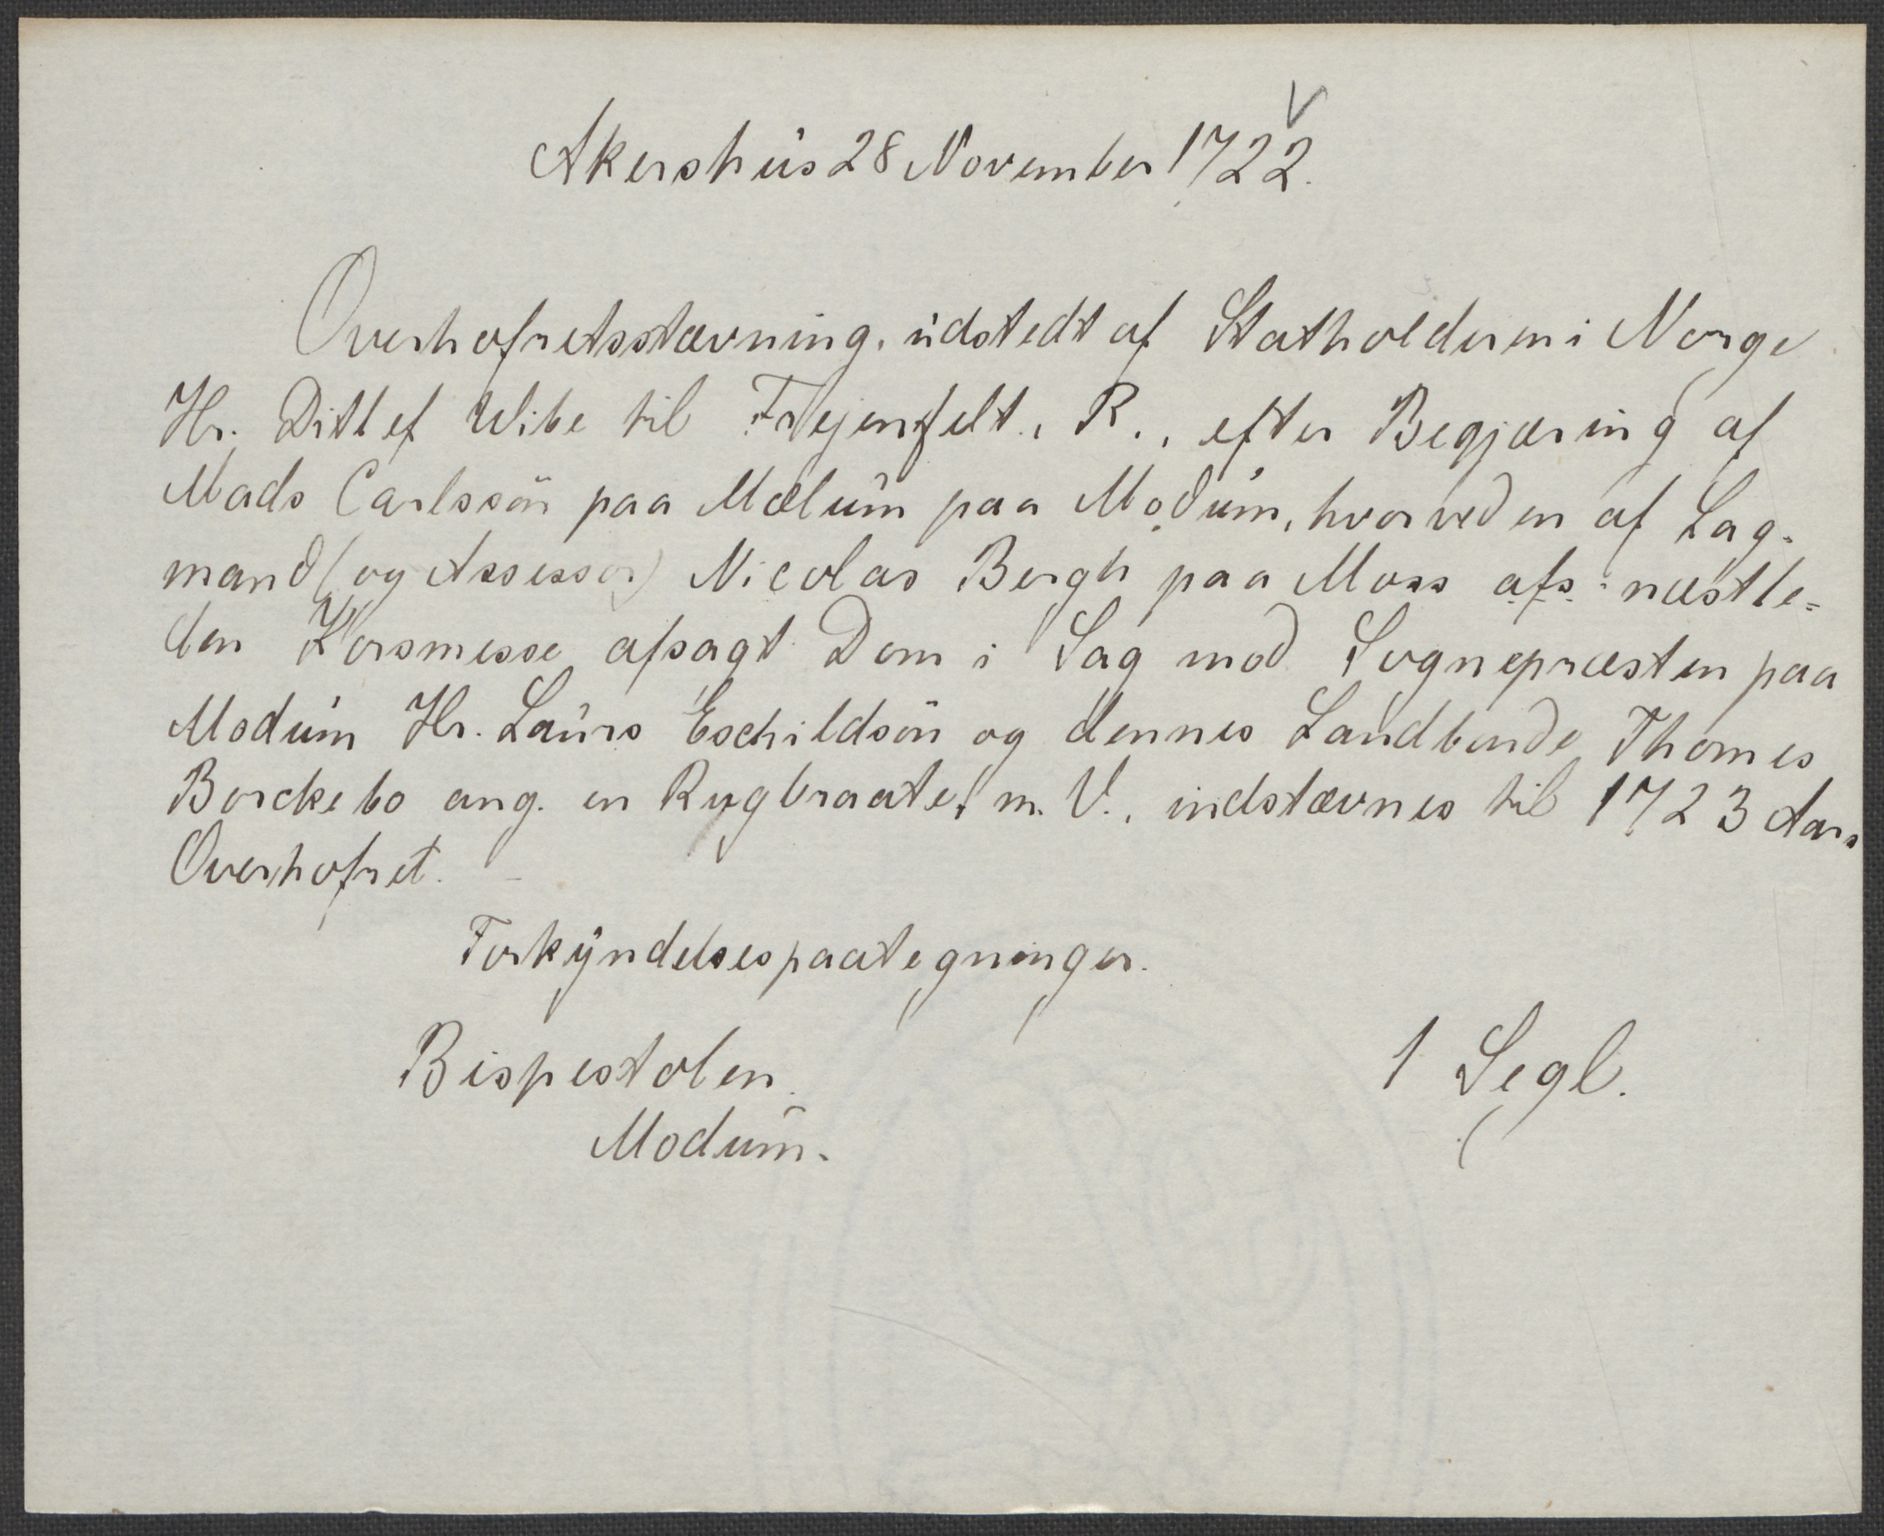 Akershus 28 November 1722.
Overhofretsstævning, udstedt af Statholderen i Norge
Hr. Ditlef Wibe til Frejenfelt, R., efter Begjæring af
Mads Carlssön paa Mælum paa Modum, hvorved en af Lag-
mand (og Assessor) Nicolas Bergh paa Moss afs. næstle-
den Korsmesse afsagt Dom i Sag mod Sognepræsten paa
Modum Hr. Laurs Eschildsön og dennes Landbonde Thomes
Borckebo ang. en Rugbraate, m. V., indstævnes til 1723 Aars
Overhofret.
Forkyndelsespaategninger.
Bispestolen.
1 Segl.
Modum.